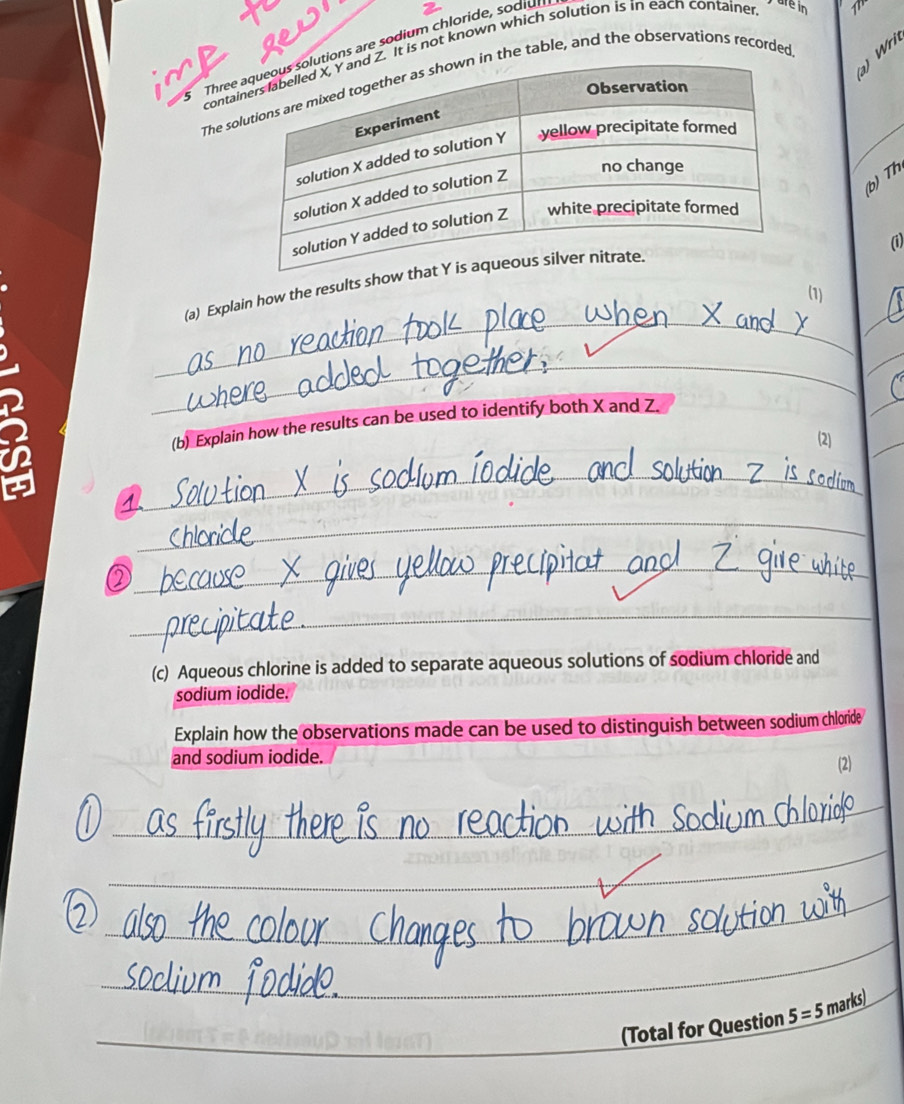 imp
2
5 Three aqueous solutions are sodium chloride, sodium
containers labelled X, Y and Z. It is not known which solution is in each container.
are in
The solutions are mixed together as shown in the table, and the observations recorded.
Experiment Observation
solution X added to solution Y yellow precipitate formed
solution X added to solution Z no change
solution Y added to solution Z white precipitate formed
(a) Explain how the results show that Y is aqueous silver nitrate.
(1)
as no reaction took place when X and Y
where added together.
(b) Explain how the results can be used to identify both X and Z.
(2)
1. Solution X is sodium iodide and solution Z is sodium
chloride
② because X gives yellow precipitat and Z give white
precipitate.
(c) Aqueous chlorine is added to separate aqueous solutions of sodium chloride and
sodium iodide.
Explain how the observations made can be used to distinguish between sodium chloride
and sodium iodide.
(2)
① as firstly there is no reaction with sodium chloride
② also the colour changes to brown solution with
sodium iodide.
(Total for Question 5 = 5 marks)
GCSE
(a) Writ
(b) Th
(i)